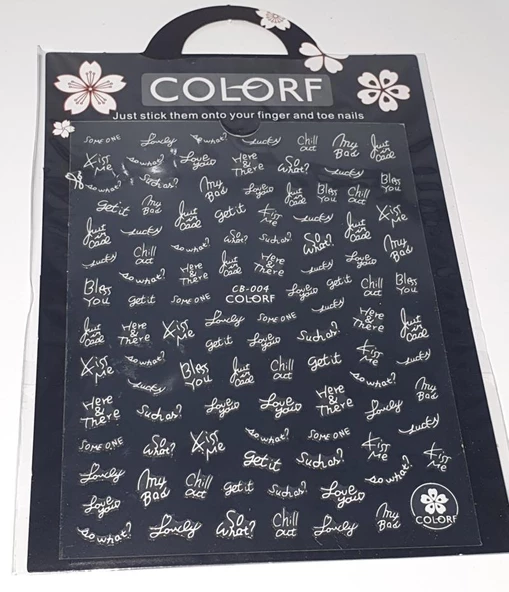 COLORF
Just stick them onto your finger and toe nails
SOMEONE Lovely so what? Lucky Chill out My Bad Just in Case
Kiss Me so what? Love you Here & There So What? Bless You
so what? Such as? My Bad Love you Just in Case Bless You Chill out
Get it My Bad Just in Case get it Kiss Me Lucky Just in Case Kiss Me
Just in Case Lucky so what? So What? Such as? So What? My Bad
Lucky Chill out so what? Here & There Just in Case Here & There Lucky Love you
Bless You Get it SOMEONE CB-004 Love you get it Chill out Bless You
COLORF Lucky
Just in Case Here & There Kiss Me Lovely SOMEONE Here & There Just in Case
get it Love you Such as? Kiss Me
Kiss Me so what? Bless You Just in Case Chill out get it Lucky
Lucky so what? My Bad
Here & There Such as? Love you Love you Here & There Lovely Lucky
SOMEONE So What? Kiss Me so what? SOMEONE Kiss Me Kiss Me
get it Such as? so what?
Lovely My Bad Chill out get it Such as? Love you
Love you COLORF
so what? Lovely So What? Chill out Lovely My Bad